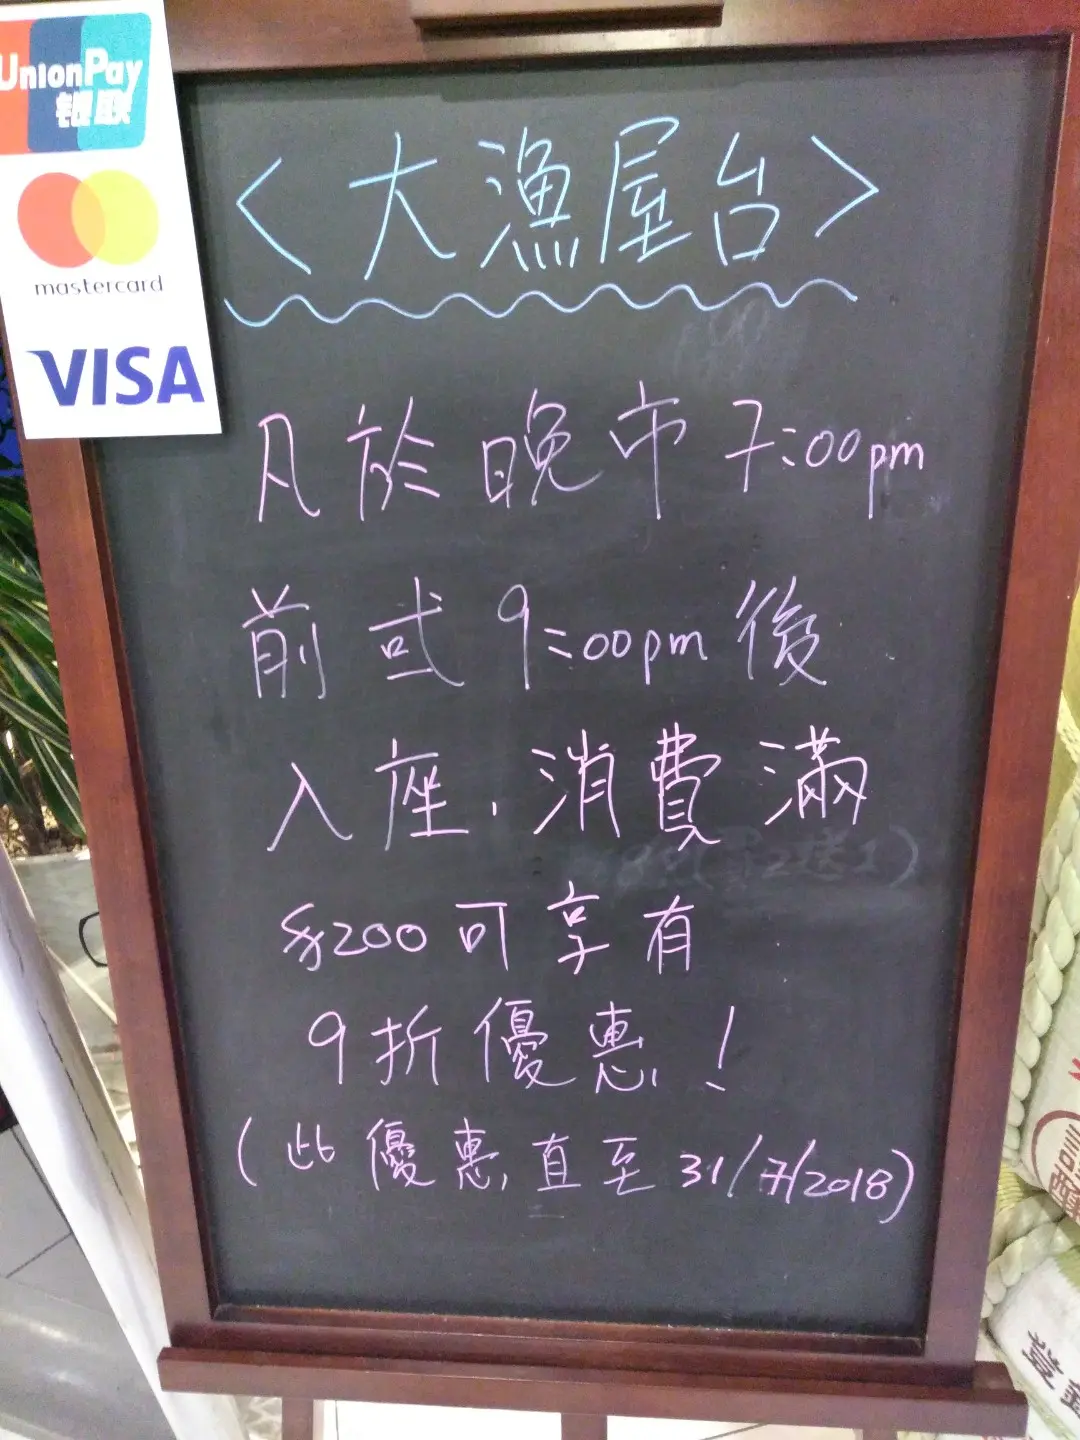 UnionPay
银联
mastercard
VISA
<大漁屋台>
凡於晚市7:00pm
前或9:00pm後
入座,消費滿
$200可享有
9折優惠!
(此優惠直至31/7/2018)